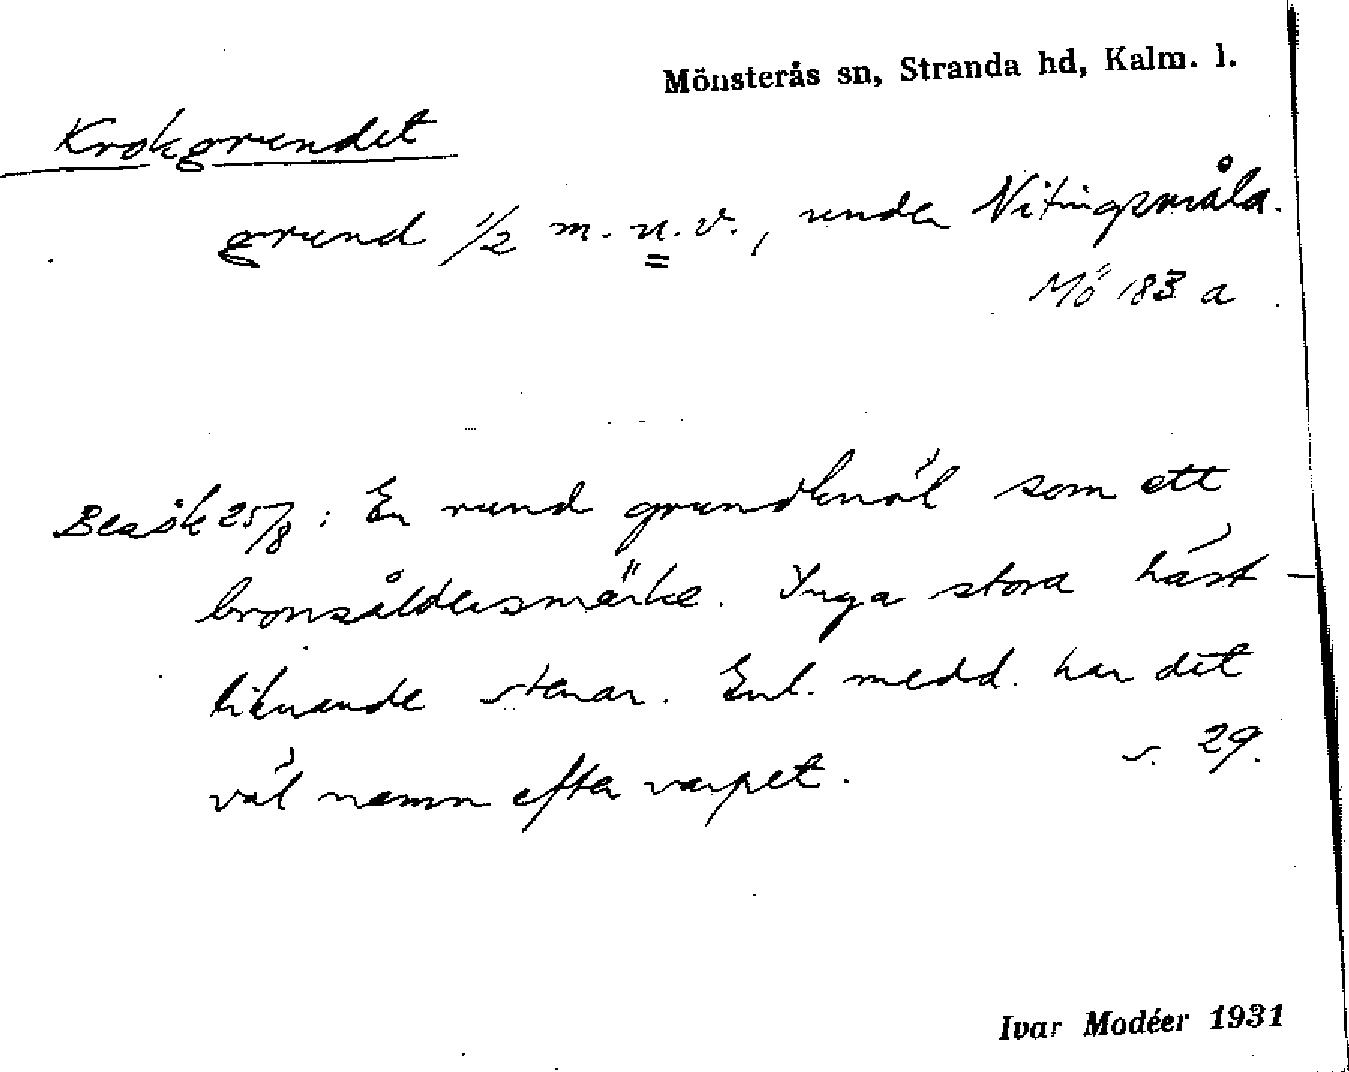 Mönsterås sn, Stranda hd, Kalm. l.
Krokgrundet
grund 1/2 m. u. v., under Nitingsmåla.
Mö 183 a
Besök 25/8 : En rund grundknöl som ett
bronsåldersmärke. Inga stora häst-
liknande stenar. Enl. medd. har det
väl namn efter varpet. s. 29.
Ivar Modéer 1931